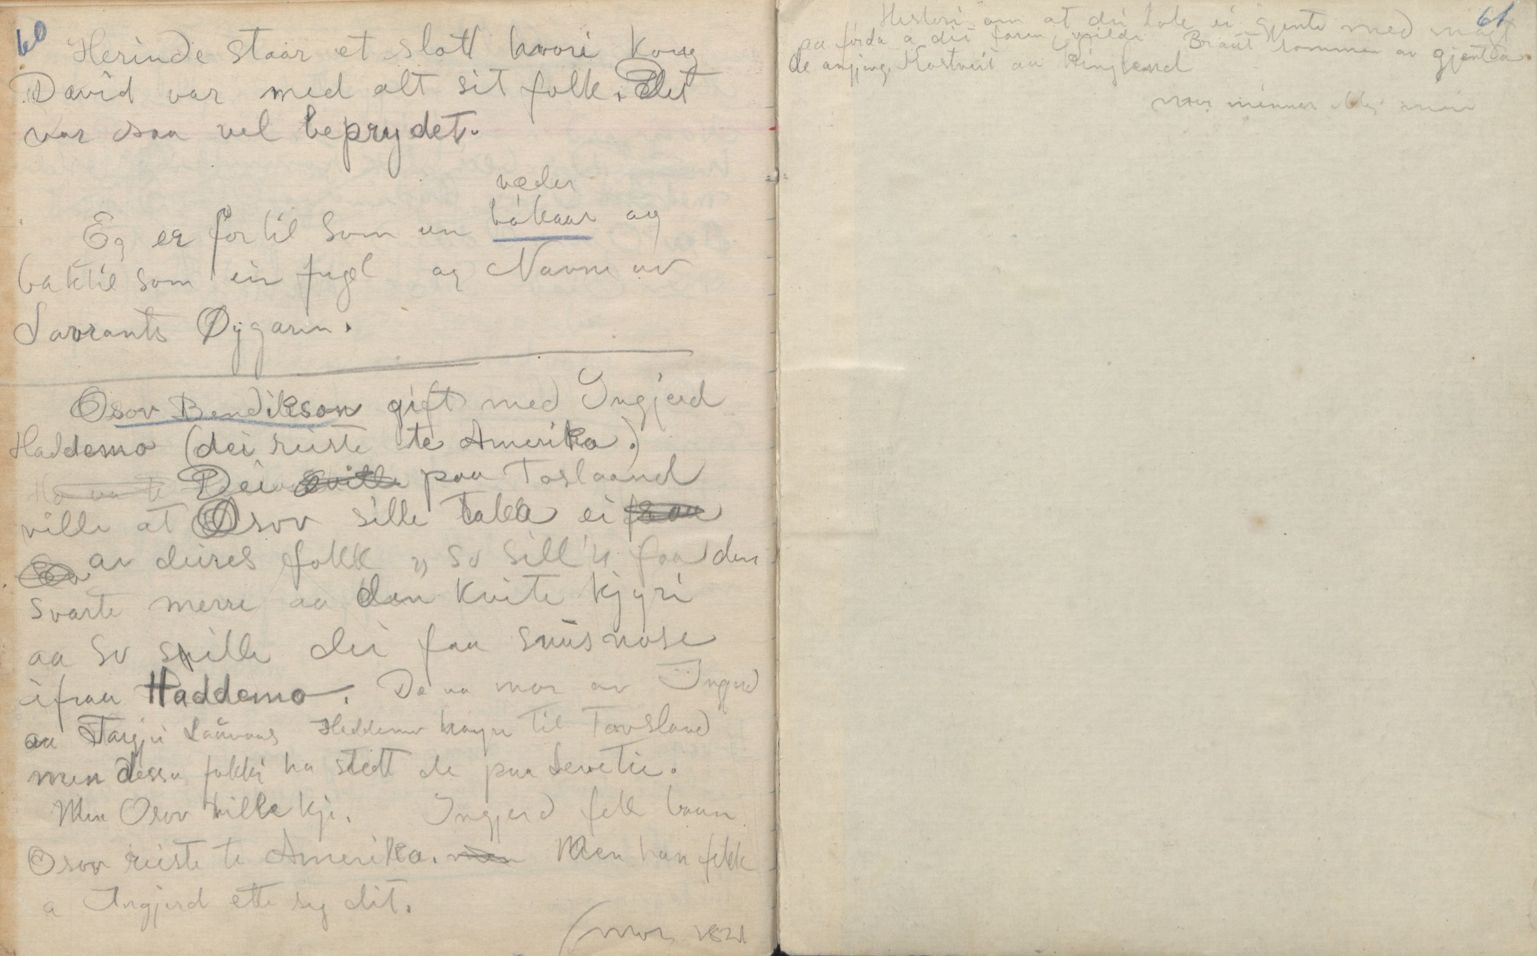 60
Herinde staar et slott hvori Kong
David var med alt sit folk. Det
var saa vel beprydet.
væder
Eg er fortil som en båkaar og
baktil som ein fugl og Navne av
Lavrants Øygarn.
Osov Bendikson gift med Yngjerd
Haddemo (dei reiste te Amerika.)
Ho va te Dei ville paa Toslaand
ville at Osov sille takke ei frau
av deires fokk „ so sill'n faa den
svarte merri aa den kvite kjyri
aa so spille dei faa snusnose
ifraa Haddemo. De va mor av Ingerd
aa Targjei Lauvaas Heddemo til Tovsland
men dessa fokki ha stedt de paa Levetie.
Men Osov ville kje. Yngjerd fekk baan
Osov reiste te Amerika. men Men han fekk
a Yngjerd ette seg dit.
(mor
61
Histori om at dei toke ei gjente med magt
paa ferda a dei faren vilde Braut sommen av gjentea.
Kostveit aa Ringland